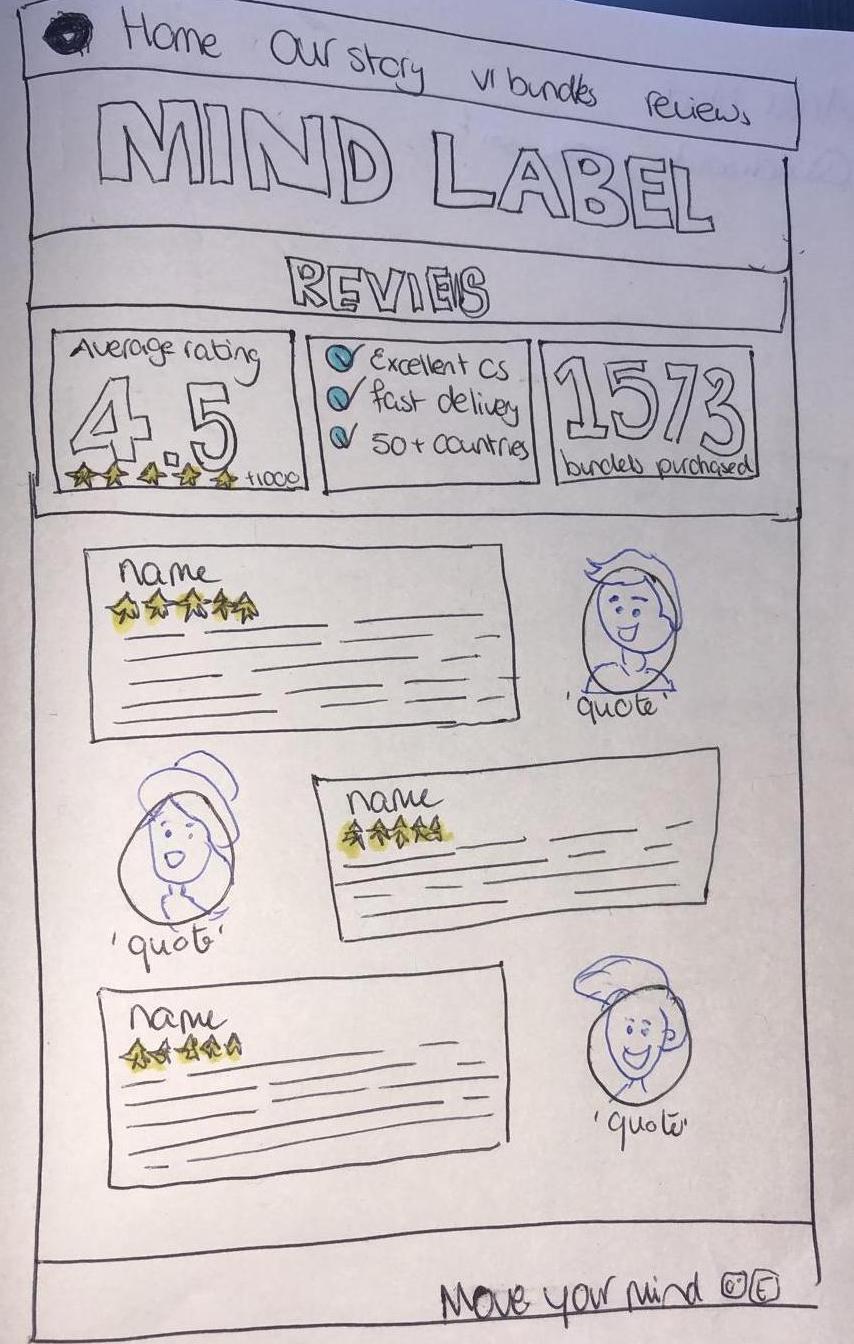 Home Our story VI bundles reviews
MIND LABEL
REVIEWS
Average rating
4.5
+1000
Excellent CS
fast delivery
50+ countries
1573
bundels purchased
name
'quote'
name
'quote'
name
'quote'
Move your mind